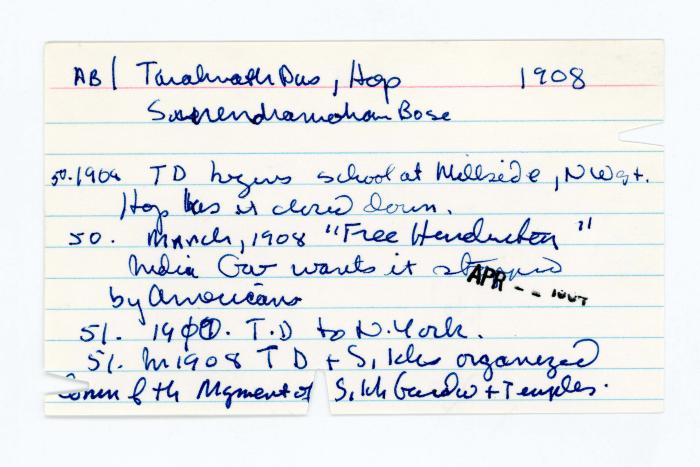 AB | Taraknath Das, Hop 1908
Surendramohan Bose
50. 1908 TD begins school at Millside, N Wst.
Hop has it closed down.
50. March, 1908 "Free Hindustan"
India Gov wants it stopped
by Americans
APR
51. 1907. T.D to N. York.
51. In 1908 T D + Sikhs organized
Comm f th Mgment of Sikh Gurdw + Temples.